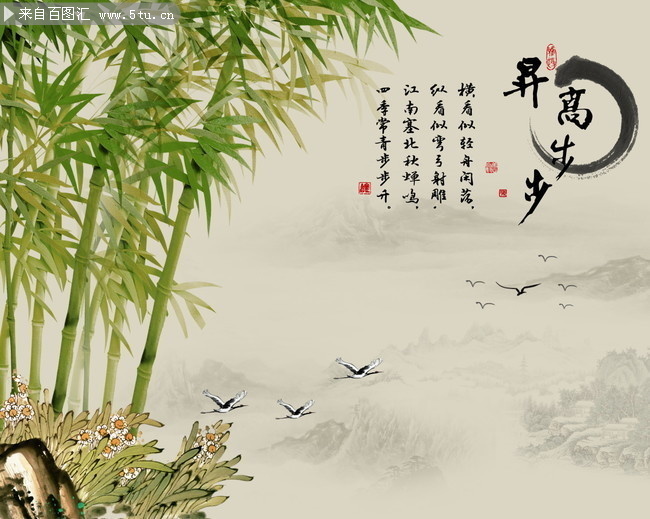 来自百图汇
www.5tu.cn
昇高步步
横看似轻舟闲荡，
纵看似弯弓射雕，
江南塞北秋蝉鸣，
四季常青步步升。